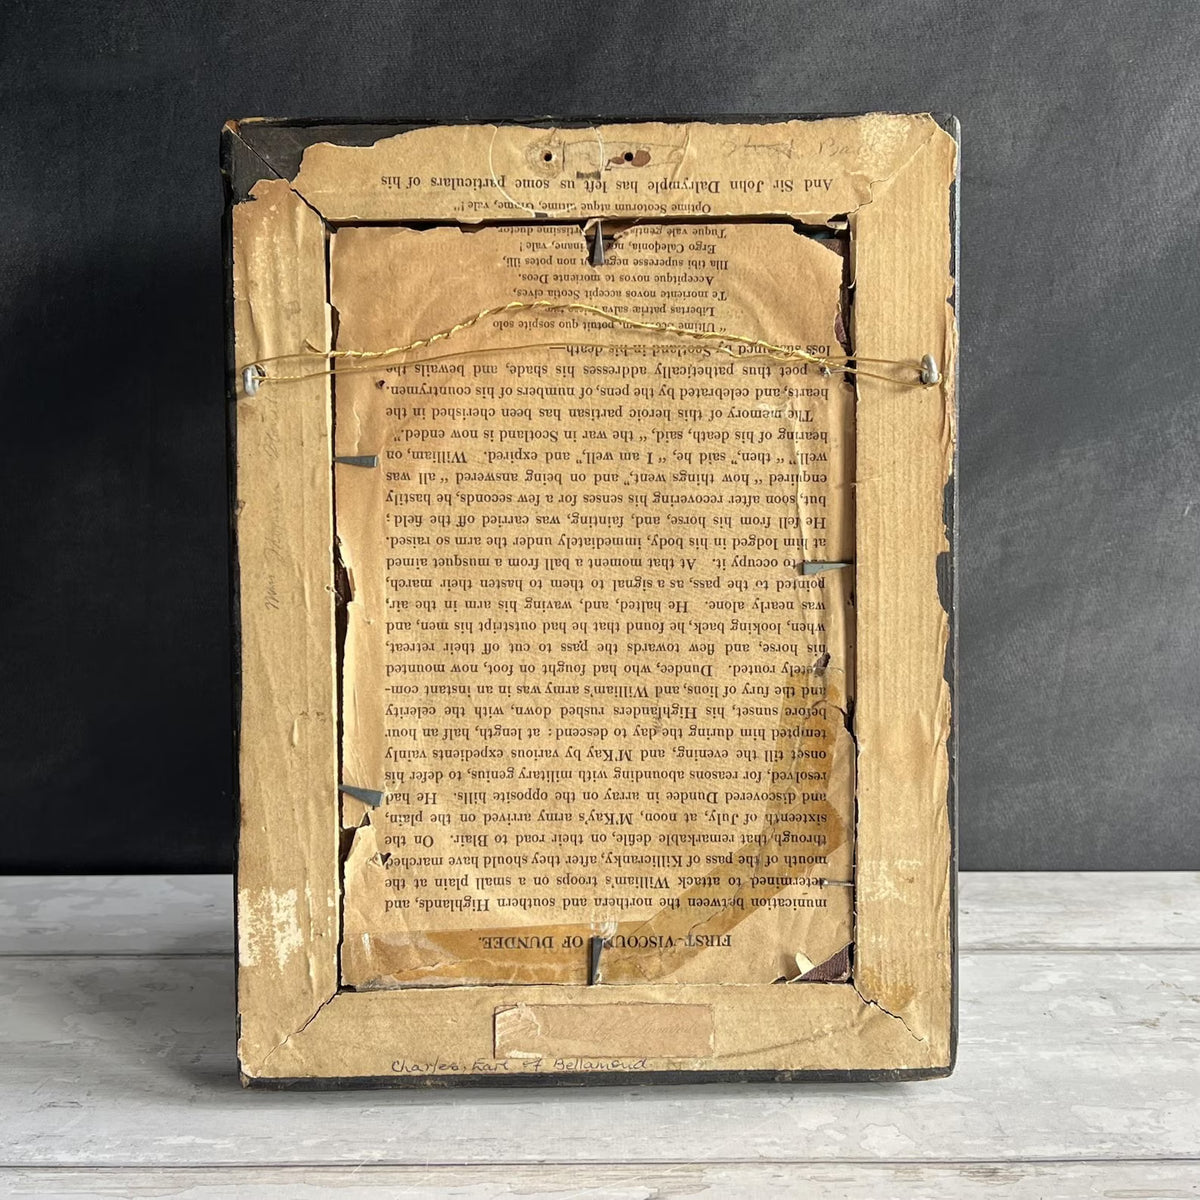 FIRST VISCOUNT OF DUNDEE.
munication between the northern and southern Highlands, and
determined to attack William's troops on a small plain at the
mouth of the pass of Killicranky, after they should have marched
through that remarkable defile, on their road to Blair. On the
sixteenth of July, at noon, M'Kay's army arrived on the plain,
and discovered Dundee in array on the opposite hills. He had
resolved, for reasons abounding with military genius, to defer his
onset till the evening, and M'Kay by various expedients vainly
tempted him during the day to descend: at length, half an hour
before sunset, his Highlanders rushed down, with the celerity
and the fury of lions, and William's army was in an instant com-
pletely routed. Dundee, who had fought on foot, now mounted
his horse, and flew towards the pass to cut off their retreat,
when, looking back, he found that he had outstript his men, and
was nearly alone. He halted, and, waving his arm in the air,
pointed to the pass, as a signal to them to hasten their march,
to occupy it. At that moment a ball from a musquet aimed
at him lodged in his body, immediately under the arm so raised.
He fell from his horse, and, fainting, was carried off the field;
but, soon after recovering his senses for a few seconds, he hastily
enquired "how things went," and on being answered "all was
well," "then," said he, "I am well," and expired. William, on
hearing of his death, said, "the war in Scotland is now ended."
The memory of this heroic partisan has been cherished in the
hearts, and celebrated by the pens, of numbers of his countrymen.
poet thus pathetically addresses his shade, and bewails the
loss sustained by Scotland in his death—
"Ultime Scotorum, potuit quo sospite solo
Libertas patriæ salva
Te moriente novos accepit Scotia cives,
Accepitque novos te moriente Deos.
Illa tibi superesse negat, tu non potes illi,
Ergo Caledonia, nomen inane, vale!
Tuque vale gentis fortissime ductor
Optime Scotorum atque ultime, Grame, vale!"
And Sir John Dalrymple has left us some particulars of his
Charles, Earl of Bellamond